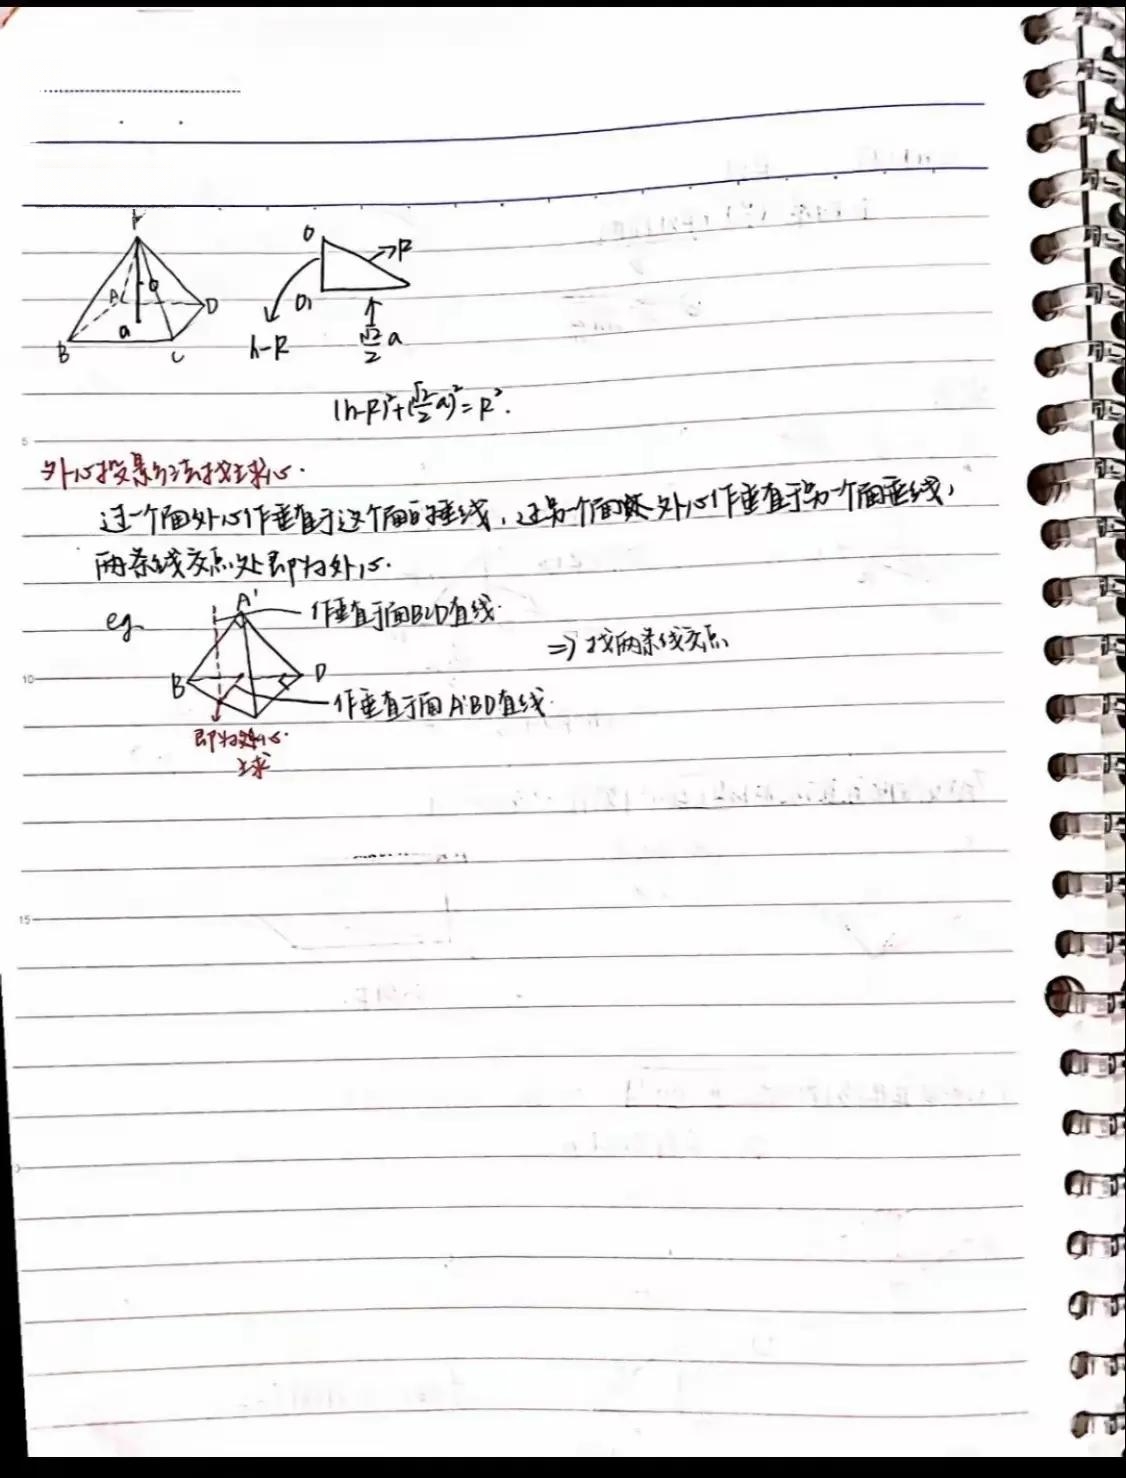 P
A
O
D
a
B
C
O
R
O₁
h-R
√2/2 a
(h-R)²+(√2/2 a)²=R².
外心投影方法找球心.
过一个面外心作垂直于这个面的垂线,过另一个面 外心作垂直于另一个面垂线,
两条线交点处即为外心.
eg.
A'
作垂直于面BCD直线.
⇒ 找两条线交点
B
D
作垂直于面A'BD直线.
即为 心.
球
5
10
15